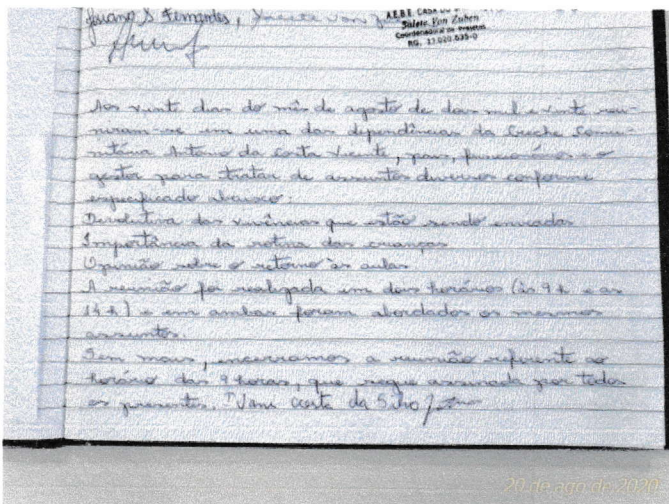 Josiane S. Fernandes, Janete von
A.E.B.E. CASA DO
Salete Von Zuben
Coordenadora de Projetos
RG. 13.020.635-0
Aos vinte dias do mês de agosto de dois mil e vinte reu-
niram-se em uma das dependências da Creche Comu-
nitária Antonio da Costa Vicente, pais, funcionários e o
gestor para tratar de assuntos diversos conforme
especificado abaixo:
Devolutiva das vivências que estão sendo enviadas
Importância da rotina das crianças
Opinião sobre o retorno às aulas
A reunião foi realizada em dois horários (às 9 h e as
14 h) e em ambas foram abordados os mesmos
assuntos.
Sem mais, encerramos a reunião referente ao
horário das 9 horas, que segue assinada por todos
os presentes. Vani Costa da Silva
20 de ago de 2020